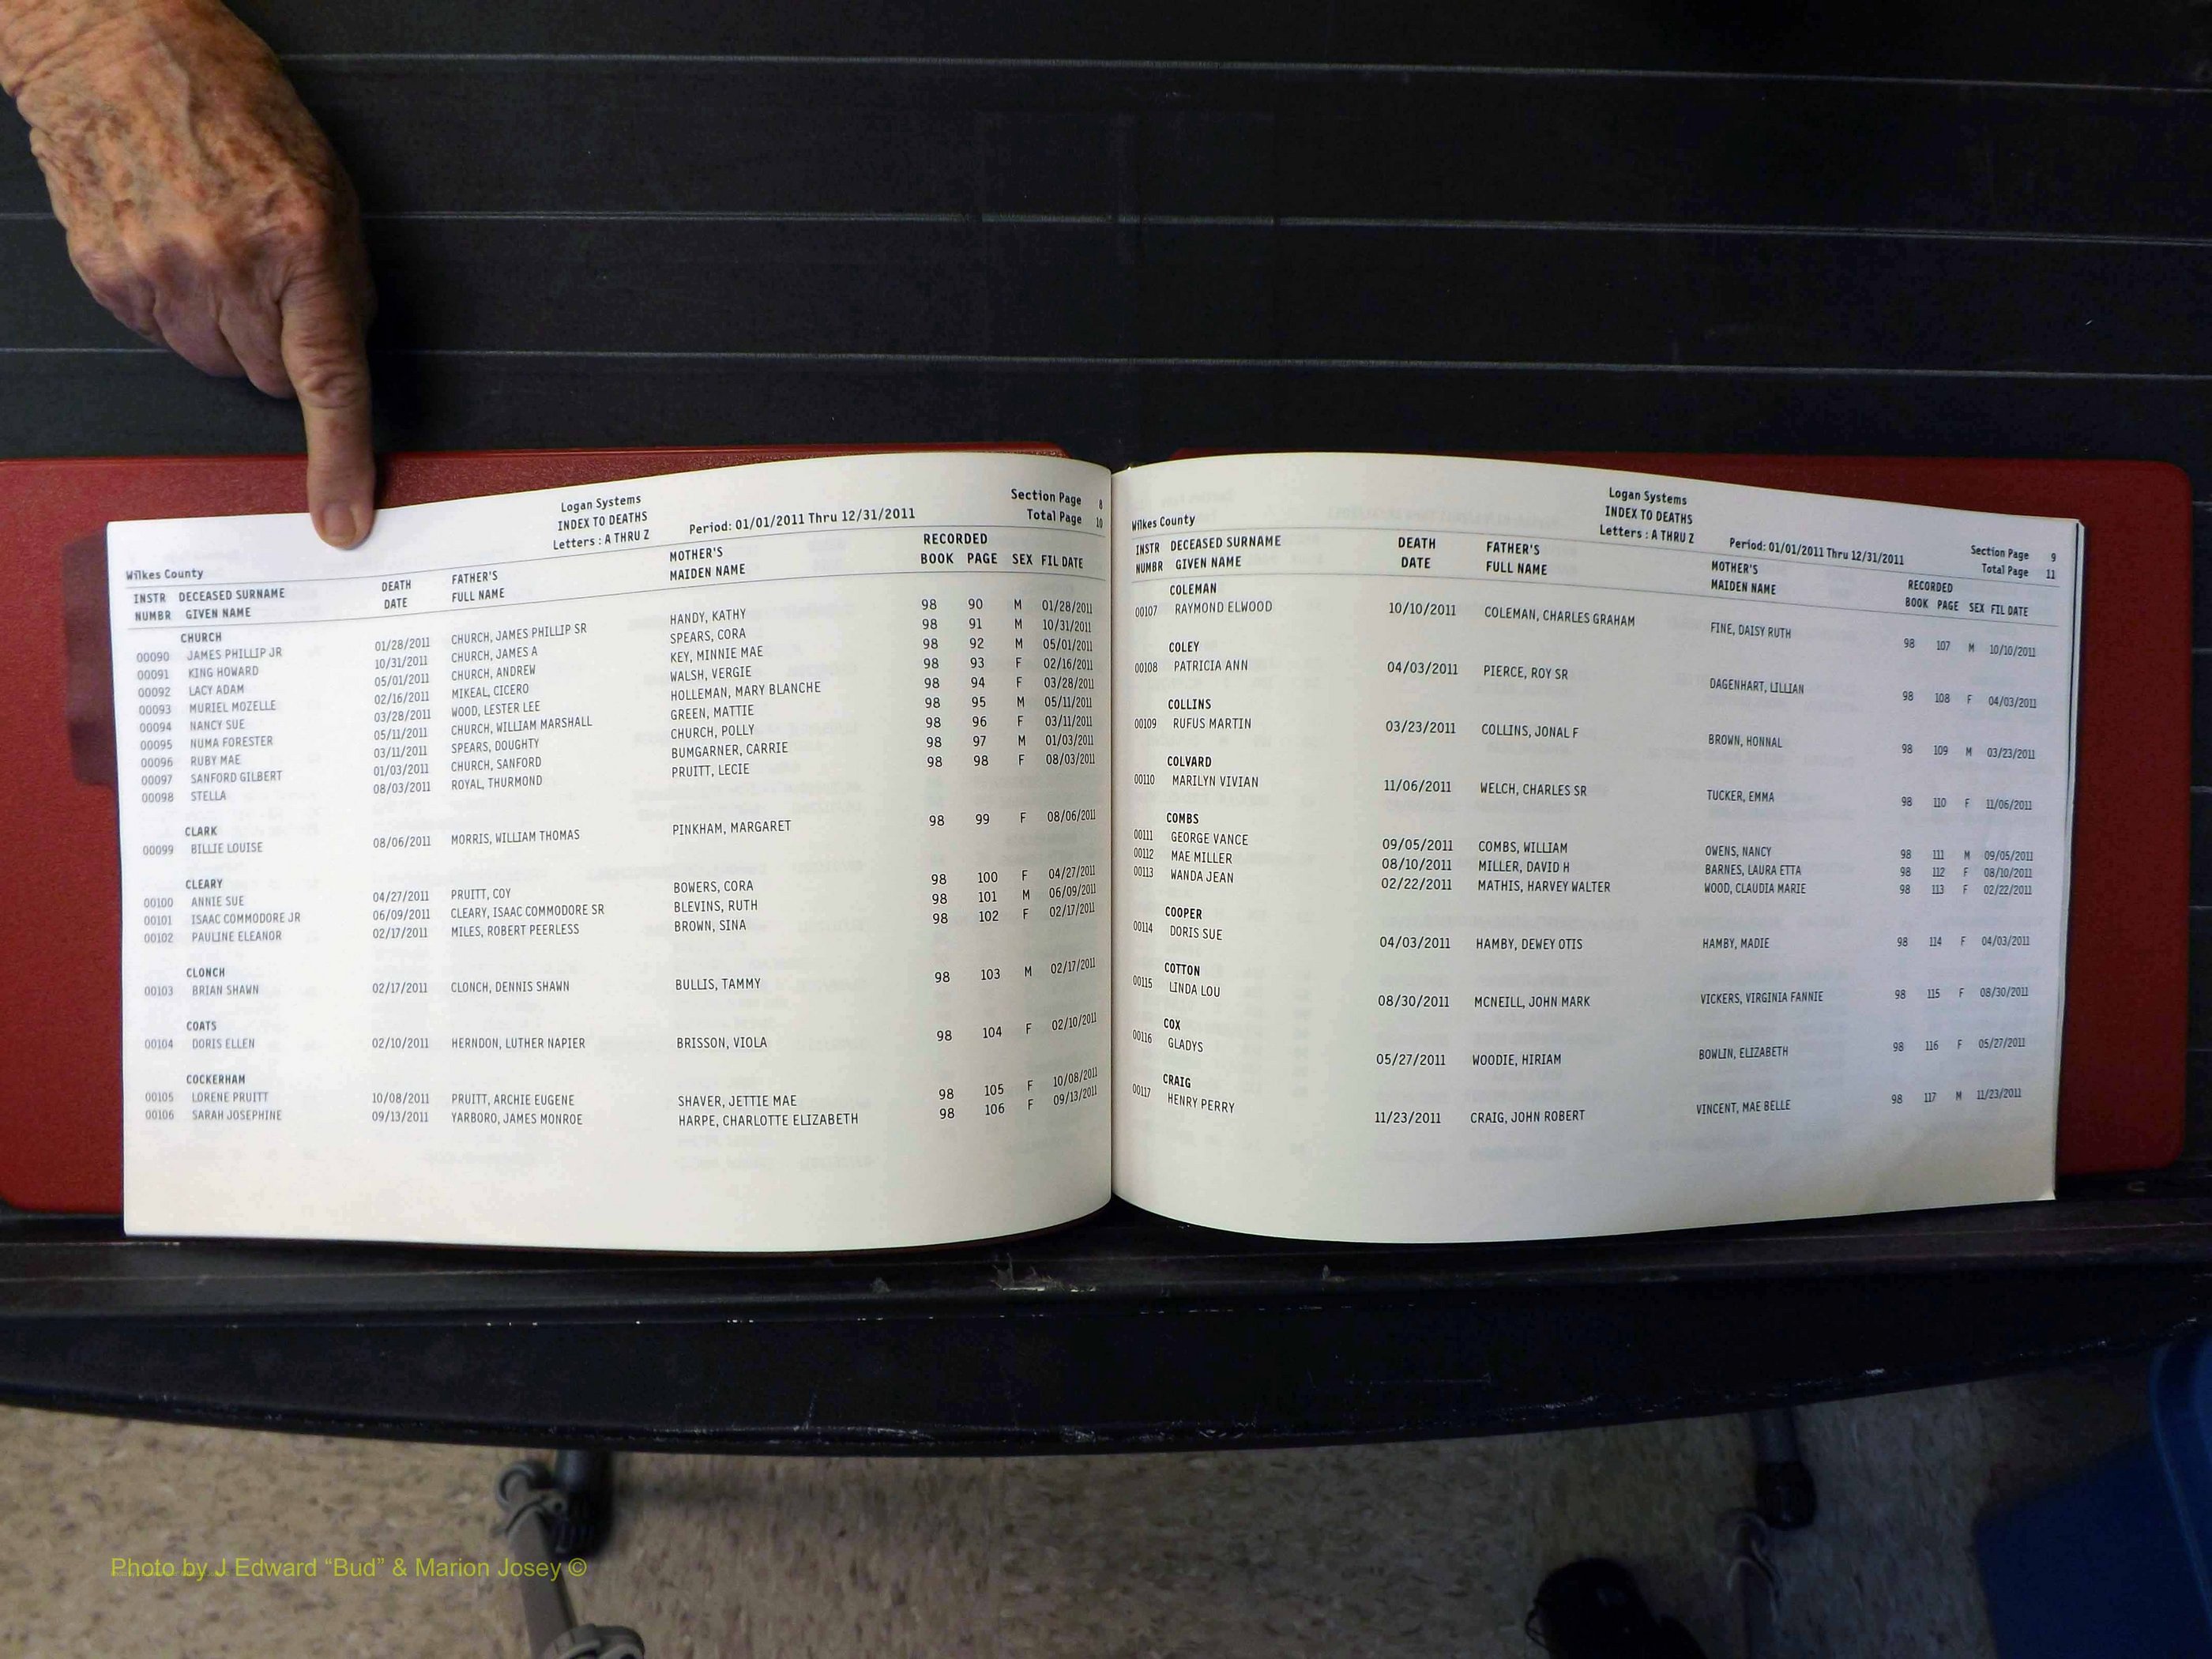 Logan Systems
INDEX TO DEATHS
Letters : A THRU Z
Wilkes County Period: 01/01/2011 Thru 12/31/2011 Section Page 8
Total Page 10
INSTR DECEASED SURNAME DEATH FATHER'S MOTHER'S RECORDED
NUMBR GIVEN NAME DATE FULL NAME MAIDEN NAME BOOK PAGE SEX FIL DATE
CHURCH
00090 JAMES PHILLIP JR 01/28/2011 CHURCH, JAMES PHILLIP SR HANDY, KATHY 98 90 M 01/28/2011
00091 KING HOWARD 10/31/2011 CHURCH, JAMES A SPEARS, CORA 98 91 M 10/31/2011
00092 LACY ADAM 05/01/2011 CHURCH, ANDREW KEY, MINNIE MAE 98 92 M 05/01/2011
00093 MURIEL MOZELLE 02/16/2011 MIKEAL, CICERO WALSH, VERGIE 98 93 F 02/16/2011
00094 NANCY SUE 03/28/2011 WOOD, LESTER LEE HOLLEMAN, MARY BLANCHE 98 94 F 03/28/2011
00095 NUMA FORESTER 05/11/2011 CHURCH, WILLIAM MARSHALL GREEN, MATTIE 98 95 M 05/11/2011
00096 RUBY MAE 03/11/2011 SPEARS, DOUGHTY CHURCH, POLLY 98 96 F 03/11/2011
00097 SANFORD GILBERT 01/03/2011 CHURCH, SANFORD BUMGARNER, CARRIE 98 97 M 01/03/2011
00098 STELLA 08/03/2011 ROYAL, THURMOND PRUITT, LECIE 98 98 F 08/03/2011
CLARK
00099 BILLIE LOUISE 08/06/2011 MORRIS, WILLIAM THOMAS PINKHAM, MARGARET 98 99 F 08/06/2011
CLEARY
00100 ANNIE SUE 04/27/2011 PRUITT, COY BOWERS, CORA 98 100 F 04/27/2011
00101 ISAAC COMMODORE JR 06/09/2011 CLEARY, ISAAC COMMODORE SR BLEVINS, RUTH 98 101 M 06/09/2011
00102 PAULINE ELEANOR 02/17/2011 MILES, ROBERT PEERLESS BROWN, SINA 98 102 F 02/17/2011
CLONCH
00103 BRIAN SHAWN 02/17/2011 CLONCH, DENNIS SHAWN BULLIS, TAMMY 98 103 M 02/17/2011
COATS
00104 DORIS ELLEN 02/10/2011 HERNDON, LUTHER NAPIER BRISSON, VIOLA 98 104 F 02/10/2011
COCKERHAM
00105 LORENE PRUITT 10/08/2011 PRUITT, ARCHIE EUGENE SHAVER, JETTIE MAE 98 105 F 10/08/2011
00106 SARAH JOSEPHINE 09/13/2011 YARBORO, JAMES MONROE HARPE, CHARLOTTE ELIZABETH 98 106 F 09/13/2011
Logan Systems
INDEX TO DEATHS
Letters : A THRU Z
Wilkes County Period: 01/01/2011 Thru 12/31/2011 Section Page 9
Total Page 11
INSTR DECEASED SURNAME DEATH FATHER'S MOTHER'S RECORDED
NUMBR GIVEN NAME DATE FULL NAME MAIDEN NAME BOOK PAGE SEX FIL DATE
COLEMAN
00107 RAYMOND ELWOOD 10/10/2011 COLEMAN, CHARLES GRAHAM FINE, DAISY RUTH 98 107 M 10/10/2011
COLEY
00108 PATRICIA ANN 04/03/2011 PIERCE, ROY SR DAGENHART, LILLIAN 98 108 F 04/03/2011
COLLINS
00109 RUFUS MARTIN 03/23/2011 COLLINS, JONAL F BROWN, HONNAL 98 109 M 03/23/2011
COLVARD
00110 MARILYN VIVIAN 11/06/2011 WELCH, CHARLES SR TUCKER, EMMA 98 110 F 11/06/2011
COMBS
00111 GEORGE VANCE 09/05/2011 COMBS, WILLIAM OWENS, NANCY 98 111 M 09/05/2011
00112 MAE MILLER 08/10/2011 MILLER, DAVID H BARNES, LAURA ETTA 98 112 F 08/10/2011
00113 WANDA JEAN 02/22/2011 MATHIS, HARVEY WALTER WOOD, CLAUDIA MARIE 98 113 F 02/22/2011
COOPER
00114 DORIS SUE 04/03/2011 HAMBY, DEWEY OTIS HAMBY, MADIE 98 114 F 04/03/2011
COTTON
00115 LINDA LOU 08/30/2011 MCNEILL, JOHN MARK VICKERS, VIRGINIA FANNIE 98 115 F 08/30/2011
COX
00116 GLADYS 05/27/2011 WOODIE, HIRIAM BOWLIN, ELIZABETH 98 116 F 05/27/2011
CRAIG
00117 HENRY PERRY 11/23/2011 CRAIG, JOHN ROBERT VINCENT, MAE BELLE 98 117 M 11/23/2011
Photo by J Edward “Bud” & Marion Josey ©